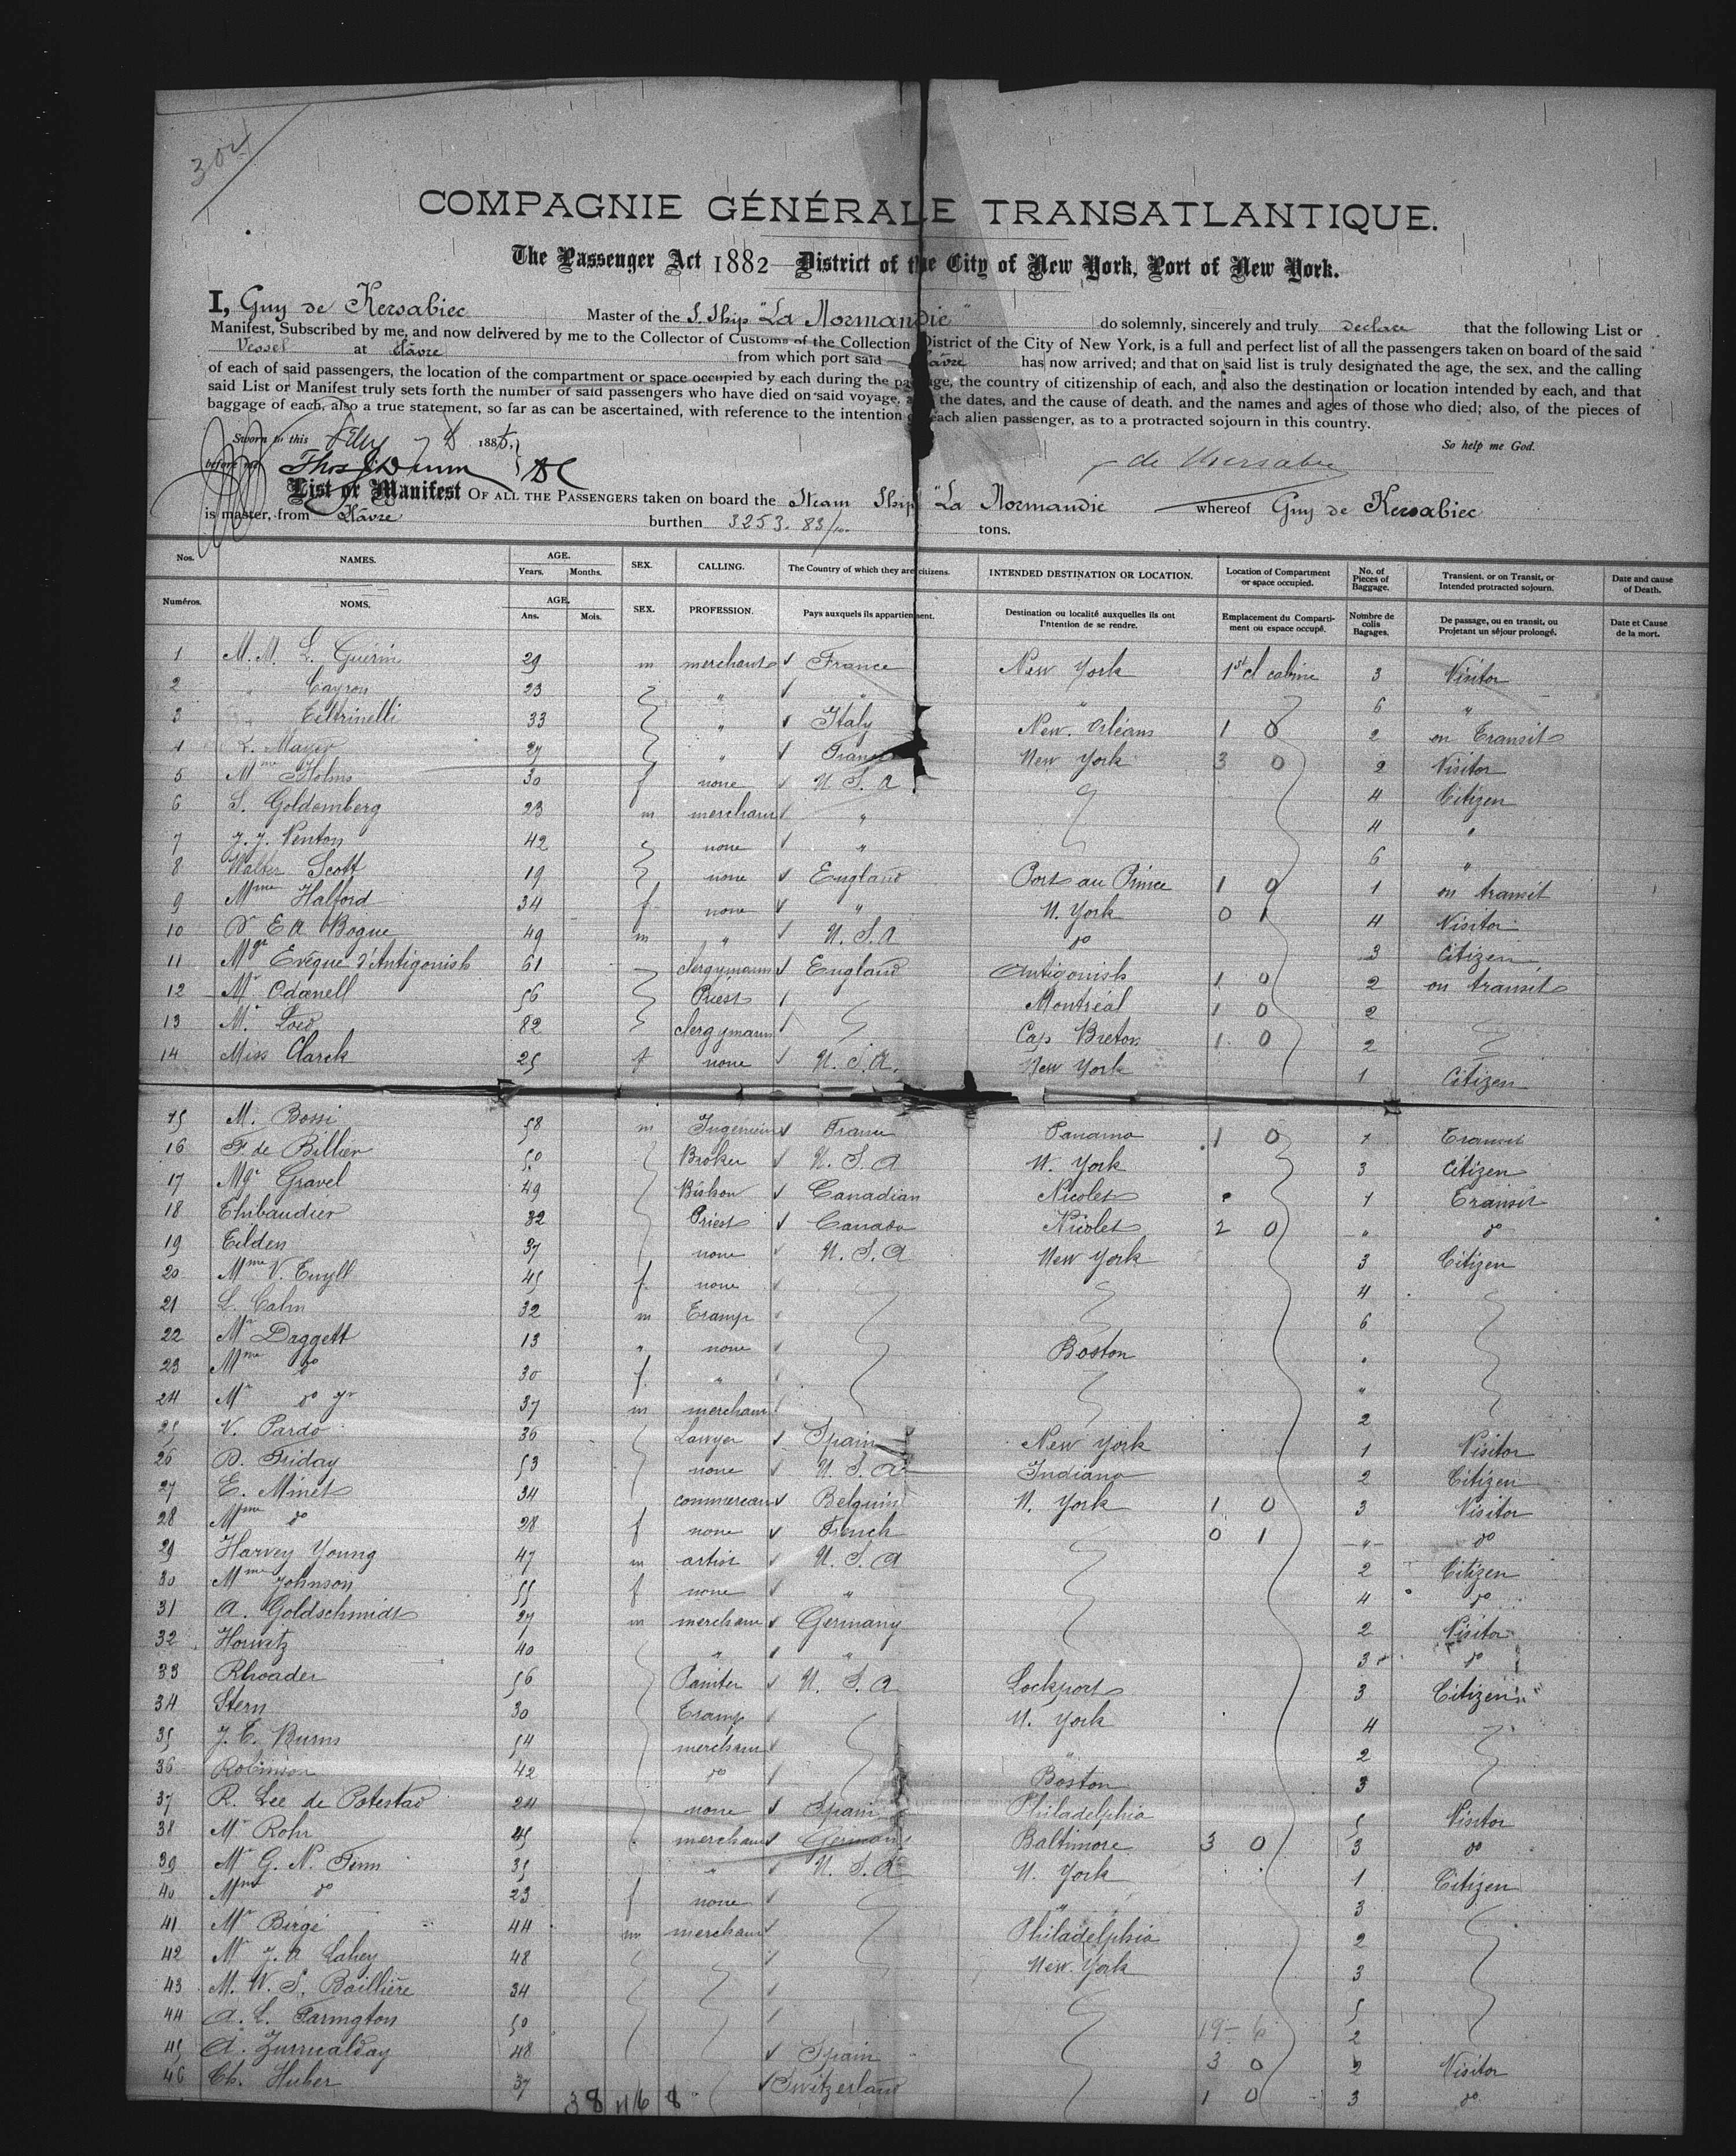 304
COMPAGNIE GÉNÉRALE TRANSATLANTIQUE.
The Passenger Act 1882 District of the City of New York, Port of New York.
I, Guy de Kersabiec Master of the S. Ship "La Normandie" do solemnly, sincerely and truly declare that the following List or
Manifest, Subscribed by me, and now delivered by me to the Collector of Customs of the Collection District of the City of New York, is a full and perfect list of all the passengers taken on board of the said
Vessel at Hâvre from which port said Hâvre has now arrived; and that on said list is truly designated the age, the sex, and the calling
of each of said passengers, the location of the compartment or space occupied by each during the passage, the country of citizenship of each, and also the destination or location intended by each, and that
said List or Manifest truly sets forth the number of said passengers who have died on said voyage, and the dates, and the cause of death. and the names and ages of those who died; also, of the pieces of
baggage of each, also a true statement, so far as can be ascertained, with reference to the intention of each alien passenger, as to a protracted sojourn in this country.
So help me God.
Sworn to this Feby 188
before me Thos Dunn
de Kersabiec
List or Manifest OF ALL THE PASSENGERS taken on board the Steam Ship "La Normandie whereof Guy de Kersabiec
is master, from Hâvre burthen 3253. 83/100 tons.
Nos. NAMES. AGE. Years. Months. SEX. CALLING. The Country of which they are citizens. INTENDED DESTINATION OR LOCATION. Location of Compartment or space occupied. No. of Pieces of Baggage. Transient, or on Transit, or Intended protracted sojourn. Date and cause of Death.
Numéros. NOMS. AGE. Ans. Mois. SEX. PROFESSION. Pays auxquels ils appartiennent. Destination ou localité auxquelles ils ont l'intention de se rendre. Emplacement du Compartiment ou espace occupé. Nombre de colis Bagages. De passage, ou en transit, ou Projetant un séjour prolongé. Date et Cause de la mort.
1 M.M. L. Guérin 29 m merchants France New York 1st cl cabine 3 Visitor
2 " Cayron 23 " " " 6 "
3 " Feltrinelli 33 " Italy New. Orléans 1 0 2 on Transit
4 L. Mayer 27 " France New York 3 0 2 Visitor
5 Mme Holms 30 f none U S. A 4 Citizen
6 S. Goldemberg 23 m merchant " 4 "
7 J. J. Venton 42 none " 6 "
8 Walter Scott 19 none England Port au Prince 1 0 1 on transit
9 Mme Halford 34 f none " N. York 0 1 4 Visitor
10 Dr E A Bogue 49 m " U. S. A do 3 Citizen
11 Mgr Evêque d'Antigonish 61 clergymann England Antigonish 1 0 2 on transit
12 Mr Odonell 56 Priest Montréal 1 0 2
13 Mr. 82 clergymann Cap Breton 1 0 2
14 Miss Clarck 25 f none U. S. A. New York 1 Citizen
15 M. Bossi 58 m Ingenieur France Panama 1 0 1 Transit
16 F. de Billier 50 Broker U. S. A N. York 3 Citizen
17 Mgr Gravel 49 Bishop Canadian Nicolet 1 Transit
18 Thibaudier 32 Priest Canada Nicolet 2 0 " do
19 Tilden 37 none U. S. A New York 3 Citizen
20 Mme V. 45 f none 4
21 L. Calm 32 m Tramp 6
22 Mr Daggett 13 " none Boston "
23 Mme do 30 f "  "
24 Mr do Jr 37 m merchant 2
25 V. Pardo 36 Lawyer Spain New York 1 Visitor
26 B. Friday 53 none U. S. A Indiana 2 Citizen
27 E. Minet 34 Belguim N. York 1 0 3 Visitor
28 Mme do 28 f none French 0 1 " do
29 Harvey Young 47 m artist U. S. A 2 Citizen
30 Mme Johnson 55 f none " 4 do
31 A. Goldschmidt 27 m merchant Germany 2 Visitor
32 Horwitz 40 " " 3 do
33 Rhoader 56 Painter U. S. A Lockport 3 Citizen
34 Stern 30 Tramp N. York 4
35 J. E. Burns 54 merchant " 2
36 Robinson 42 do Boston 3
37 R. Lee de Potestad 24 none Spain Philadelphia 5 Visitor
38 Mr Rohr 45 merchant Germany Baltimore 3 0 3 do
39 Mr G. N. Fenn 35 " U. S. A N. York 1 Citizen
40 Mme do 23 f none " 3
41 Mr Bergé 44 m merchant Philadelphia 2
42 Mr J. A Lahey 48 New York 3
43 M. W. S. Baillière 34 5
44 A. L. Farington 50 19 - 6 2
45 A. Zurricalday 48 Spain 3 0 2 Visitor
46 Ch. Huber 37 Switzerland 1 0 3 do
38 46 8